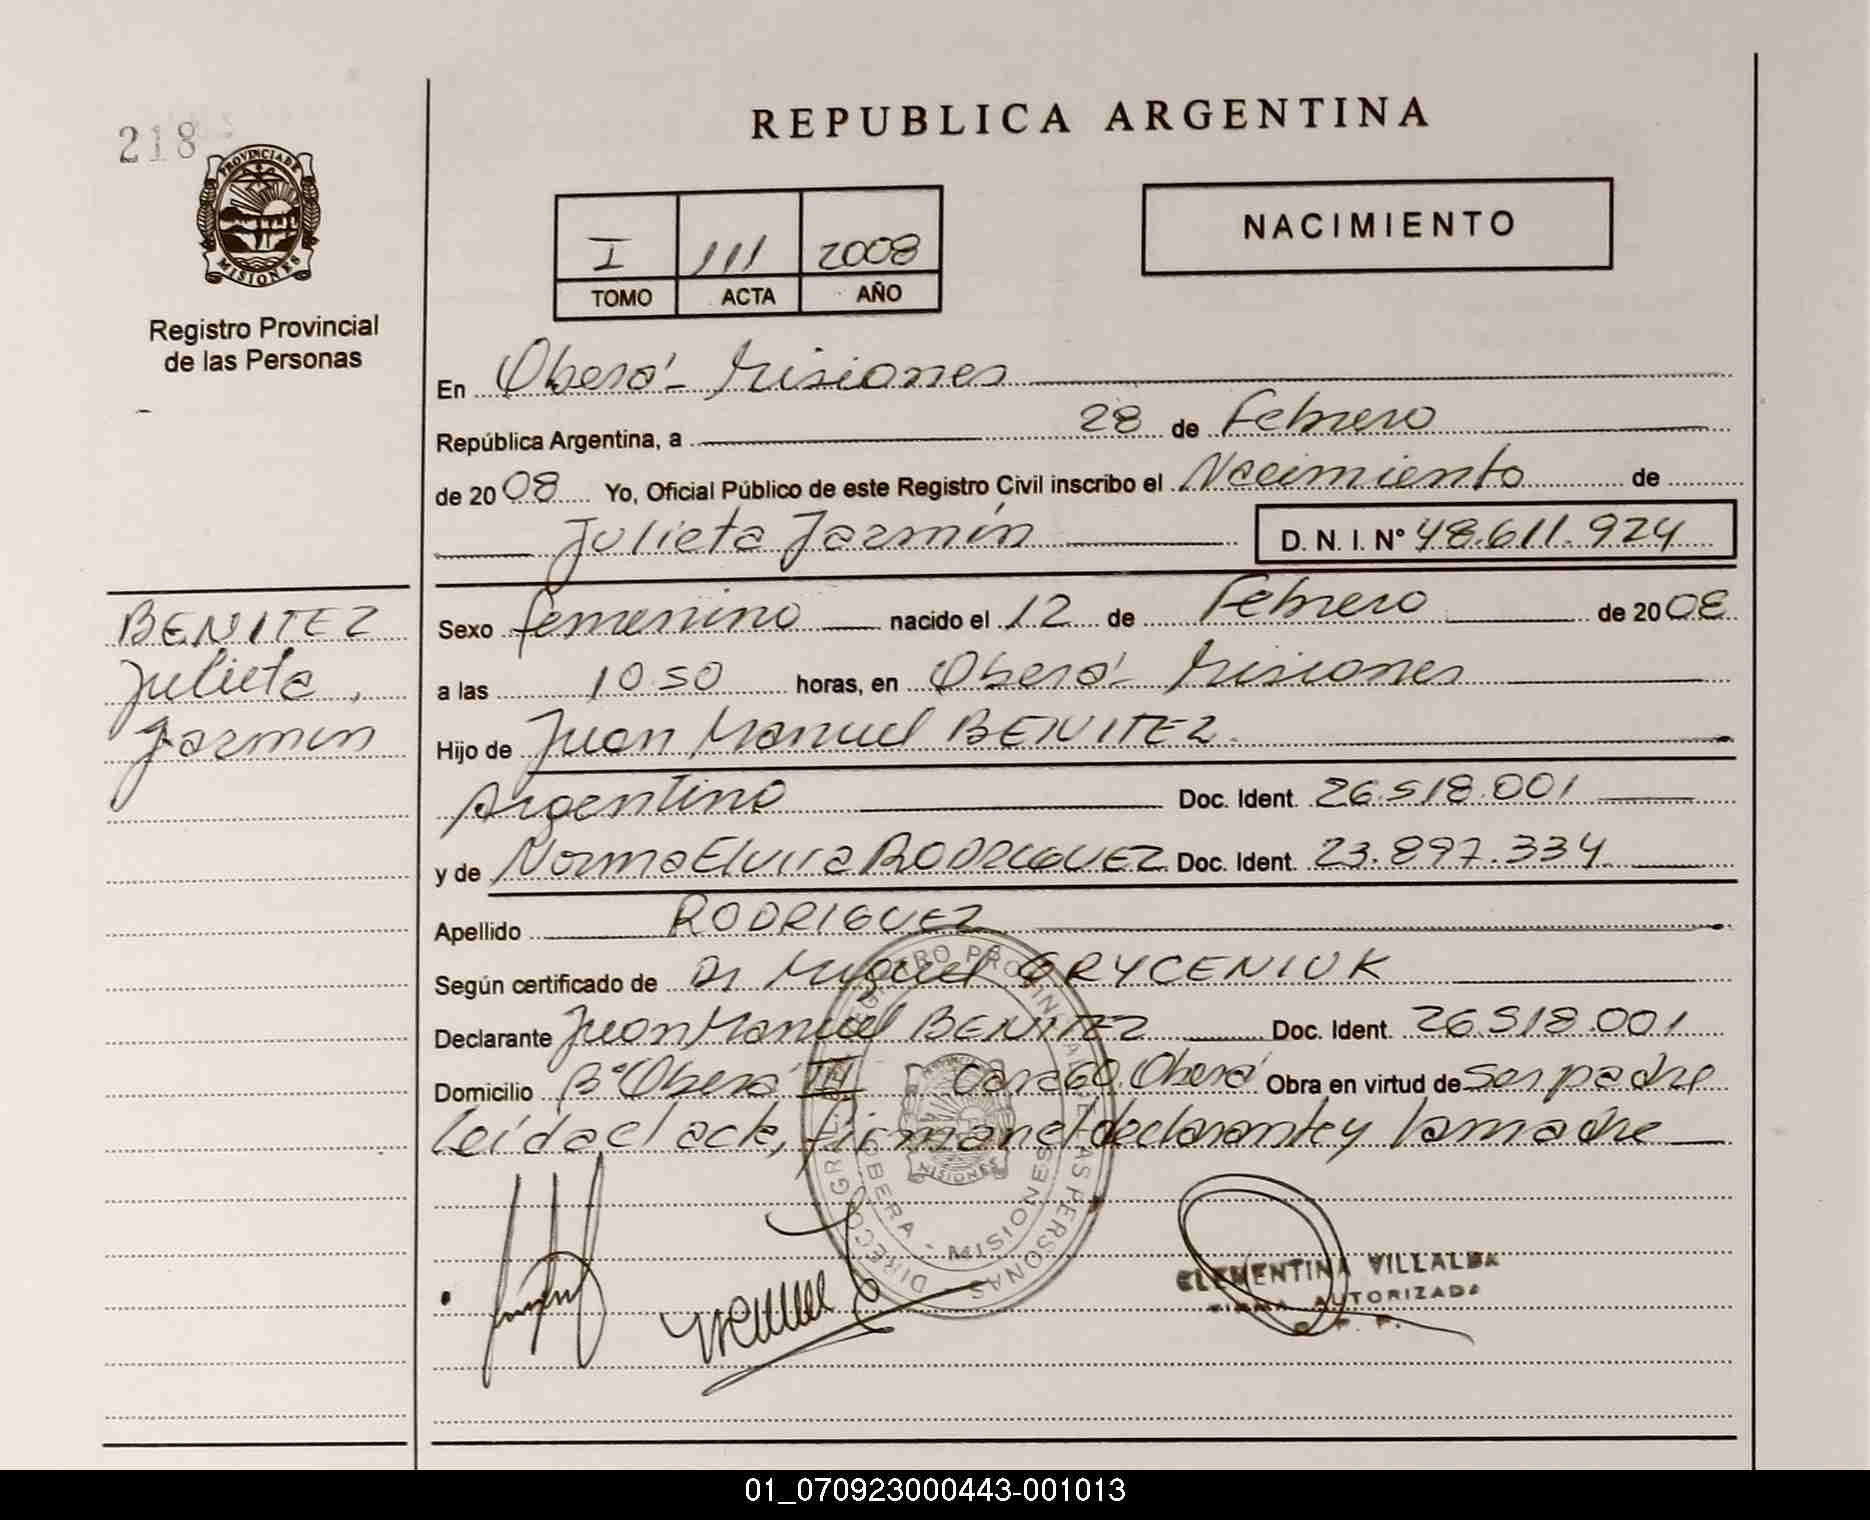 218
PROVINCIA DE
MISIONES
Registro Provincial
de las Personas
REPUBLICA ARGENTINA
I 111 2008
TOMO ACTA AÑO
NACIMIENTO
En Oberá - Misiones
República Argentina, a 28 de Febrero
de 2008 Yo, Oficial Público de este Registro Civil inscribo el Nacimiento de
Julieta Jazmín D. N. I. N° 48.611.924
BENITEZ
Julieta
Jazmin
Sexo femenino nacido el 12 de Febrero de 2008
a las 10 50 horas, en Oberá - Misiones
Hijo de Juan Manuel BENITEZ.
Argentino Doc. Ident. 26.518.001
y de Norma Elvira RODRIGUEZ Doc. Ident. 23.897.334
Apellido RODRIGUEZ
Según certificado de Dr Miguel GRYCENIUK
Declarante Juan Manuel BENITEZ Doc. Ident. 26.518.001
Domicilio B° Oberá III Casa 60. Oberá Obra en virtud de Ser padre
Leída el acta, firman el declarante y la madre
REGISTRO PROVINCIAL DE LAS PERSONAS
OBERA - MISIONES
MISIONES
CLEMENTINA VILLALBA
FIRMA AUTORIZADA
01_070923000443-001013